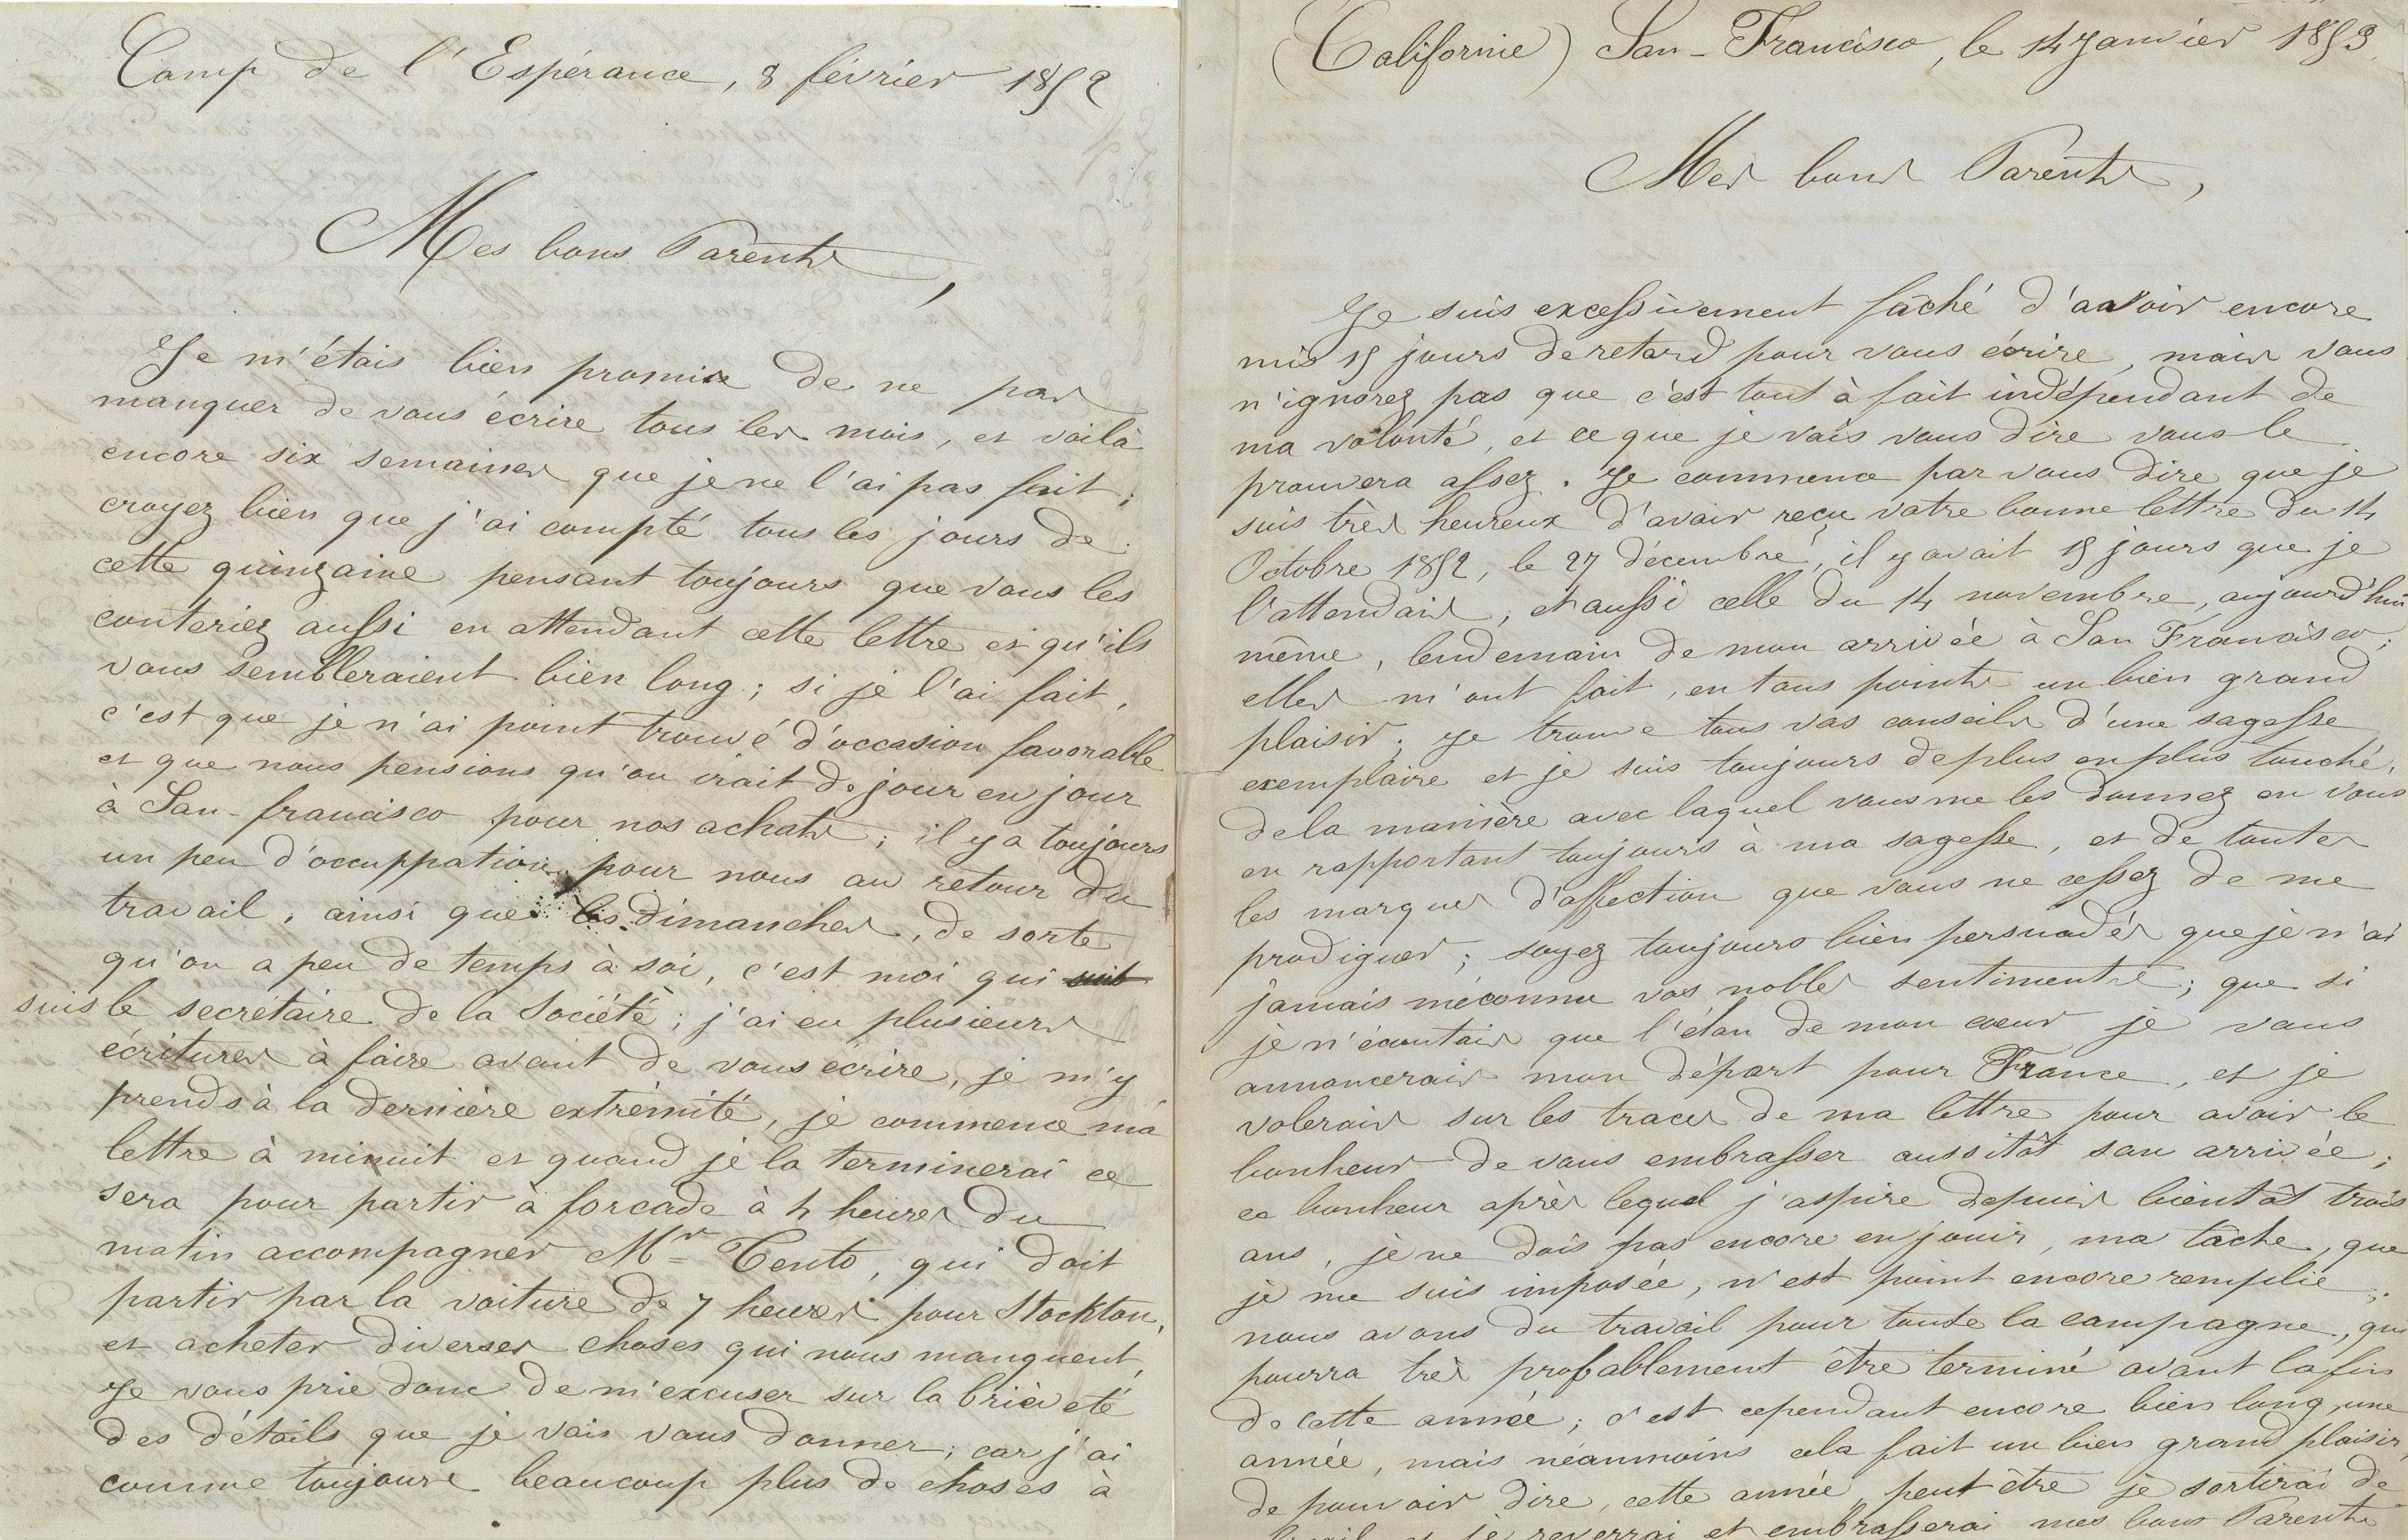 Camp de l'Espérance, 8 février 1852
Mes bons Parents,
Je m'étais bien promis de ne pas
manquer de vous écrire tous les mois, et voilà
encore six semaines que je ne l'ai pas fait;
croyez bien que j'ai compté tous les jours de
cette quinzaine pensant toujours que vous les
conteriez aussi en attendant cette lettre et qu'ils
vous sembleraient bien long; si je l'ai fait,
c'est que je n'ai point trouvé d'occasion favorable
et que nous pensions qu'on irait de jour en jour
à San-francisco pour nos achats; il y a toujours
un peu d'occuppation pour nous au retour du
travail, ainsi que les dimanches, de sorte
qu'on a peu de temps à soi, c'est moi qui
suis le secrétaire de la Société; j'ai eu plusieurs
écritures à faire avant de vous écrire, je m'y
prends à la dernière extrémité, je commence ma
lettre à minuit et quand je la terminerai ce
sera pour partir à forcade à 4 heures du
matin accompagner Mr Cento, qui doit
partir par la voiture de 7 heures pour Stockton,
et acheter diverses choses qui nous manquent,
Je vous prie donc de m'excuser sur la brièveté
des détails que je vais vous donner; car j'ai
comme toujours beaucoup plus de choses à
(Californie) San-Francisco, le 14 Janvier 1853
Mes bons Parents,
Je suis excessivement fâché d'avoir encore
mis 15 jours de retard pour vous écrire, mais vous
n'ignorez pas que c'est tout à fait indépendant de
ma volonté, et ce que je vais vous dire vous le
prouvera assez. Je commence par vous dire que je
suis très heureux d'avoir reçu votre bonne lettre du 14
Octobre 1852, le 27 décembre, il y avait 15 jours que je
l'attendais, et aussi celle du 14 novembre, aujourd'hui
même, lendemain de mon arrivée à San Francisco;
elles m'ont fait, en tous points un bien grand
plaisir; je trouve tous vos conseils d'une sagesse
exemplaire et je suis toujours de plus en plus touché,
de la manière avec laquel vous me les donnez en vous
en rapportant toujours à ma sagesse, et de toutes
les marques d'affection que vous ne cessez de me
prodiguer; soyez toujours bien persuadés que je n'ai
jamais méconnu vos nobles sentiments; que si
je n'écoutais que l'élan de mon cœur je vous
annoncerais mon départ pour France, et je
volerais sur les traces de ma lettre pour avoir le
bonheur de vous embrasser aussitôt son arrivée;
ce bonheur après lequel j'aspire depuis bientôt trois
ans, je ne dois pas encore en jouir, ma tâche, que
je me suis imposée, n'est point encore remplie;
nous avons du travail pour toute la campagne, qui
pourra très probablement être terminé avant la fin
de cette année; c'est cependant encore bien long, une
année, mais néanmoins cela fait un bien grand plaisir,
de pouvoir dire, cette année, peut être je sortirai de
je reverrai et embrasserai mes bons Parents